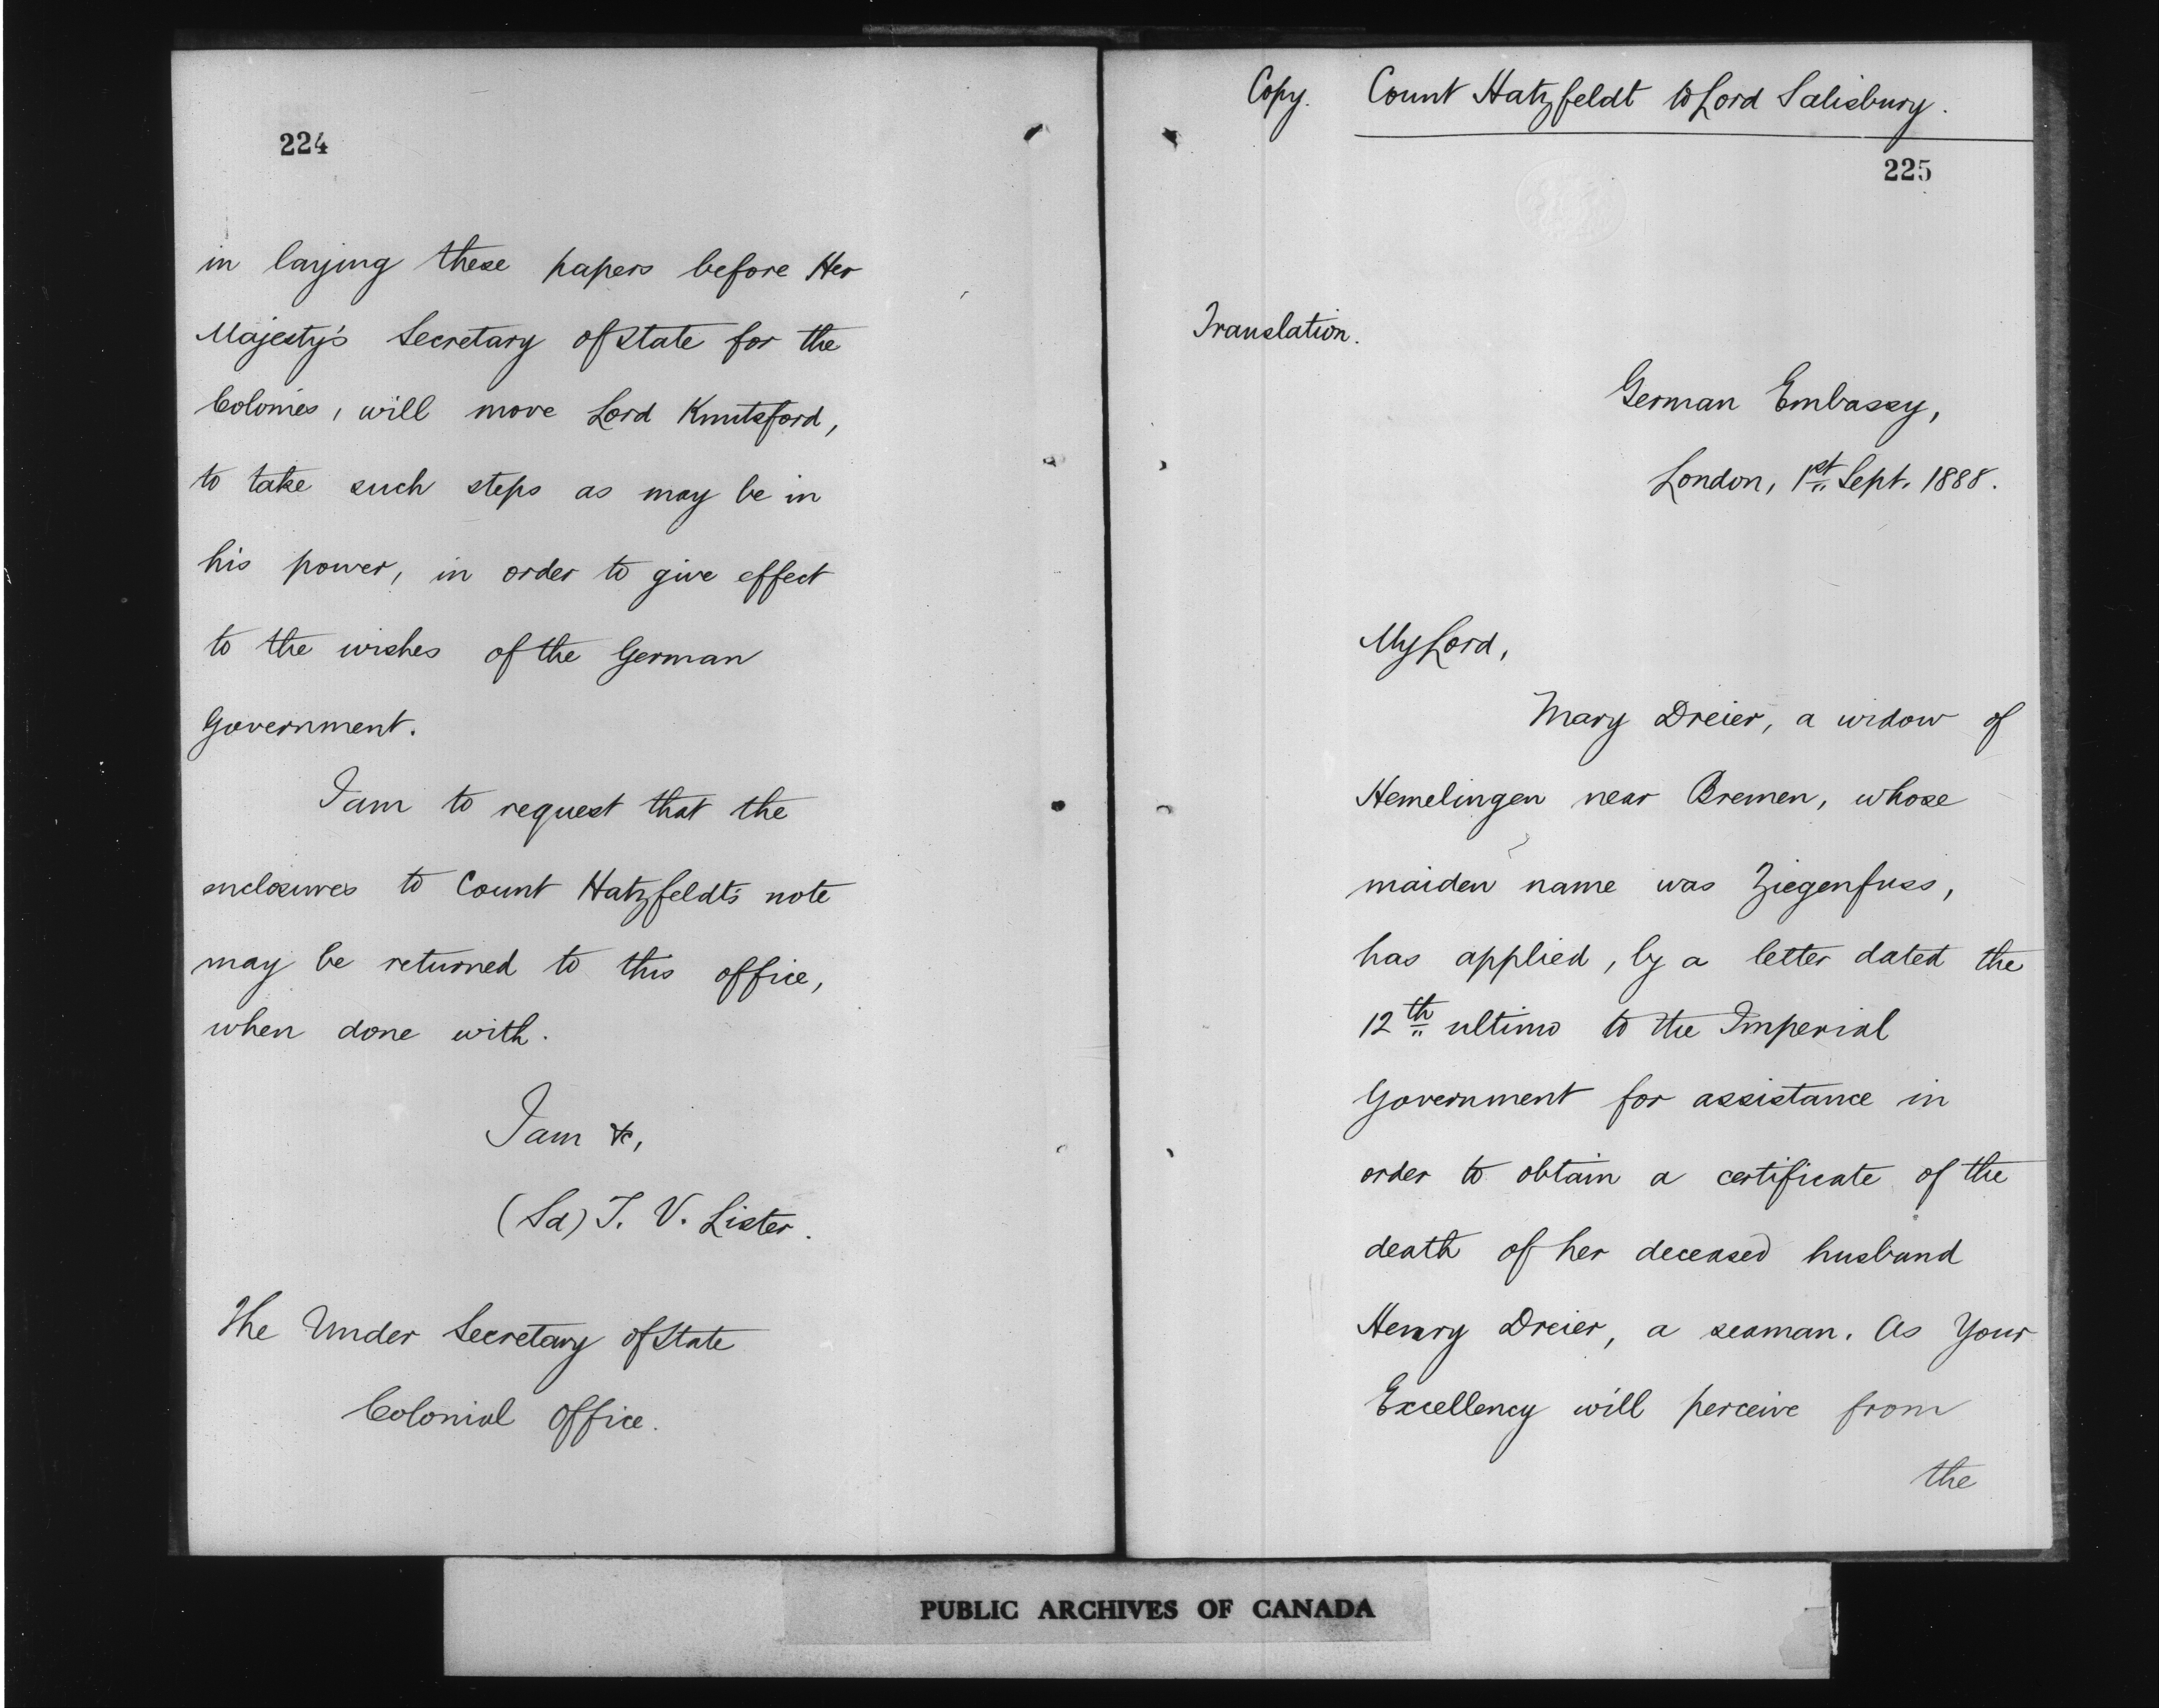 224
in laying these papers before Her
Majesty's Secretary of State for the
Colonies, will move Lord Knutsford,
to take such steps as may be in
his power, in order to give effect
to the wishes of the German
Government.
I am to request that the
enclosures to Count Hatzfeldt's note
may be returned to this office,
when done with.
I am &c,
(Sd) T. V. Lister.
The Under Secretary of State
Colonial Office.
Copy. Count Hatzfeldt to Lord Salisbury.
225
Translation.
German Embassy,
London, 1st Sept. 1888.
My Lord,
Mary Dreier, a widow of
Hemelingen near Bremen, whose
maiden name was Ziegenfuss,
has applied, by a letter dated the
12th ultimo to the Imperial
Government for assistance in
order to obtain a certificate of the
death of her deceased husband
Henry Dreier, a seaman. As Your
Excellency will perceive from
the
PUBLIC ARCHIVES OF CANADA